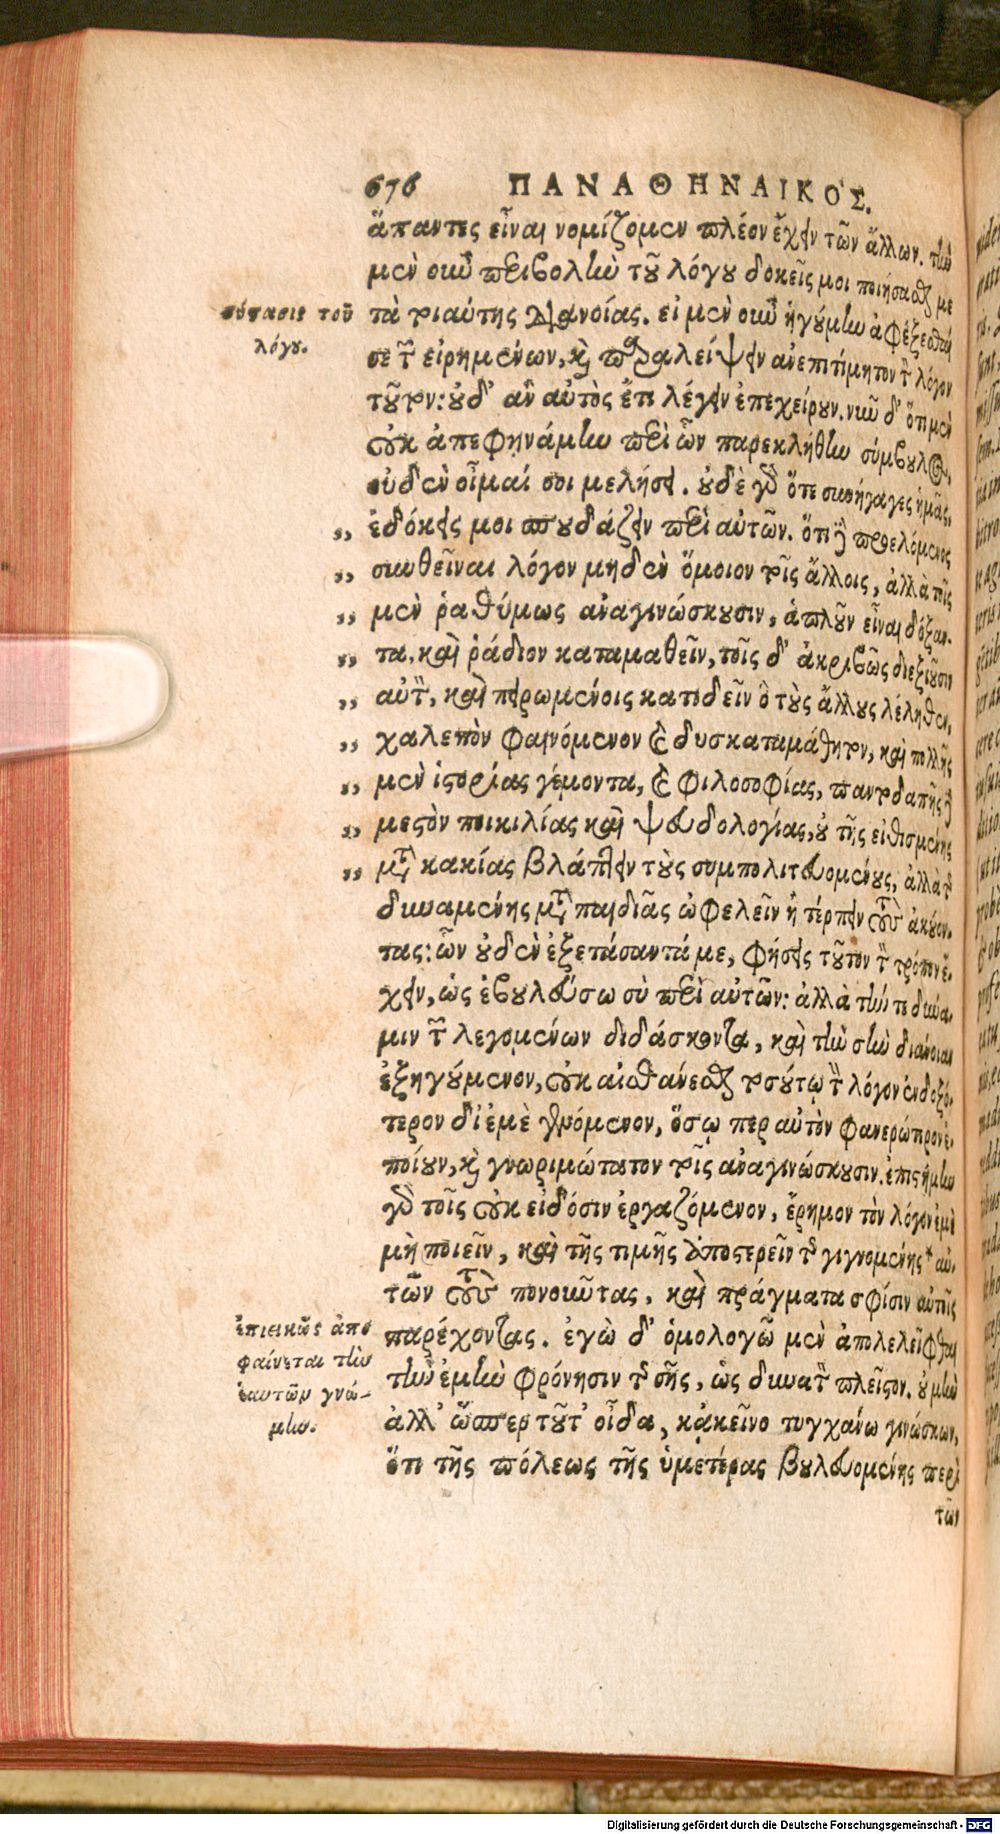 676 ΠΑΝΑΘΗΝΑΙΚΟΣ.
ἅπαντες εἶναι νομίζομεν πλέον ἔχειν τῶν ἄλλων. τὴν
μὲν οὖν περιβολὴν τοῦ λόγου δοκεῖς μοι ποιήσασθαι με
τὰ τοιαύτης διανοίας. εἰ μὲν οὖν ἡγούμην ἀφέξεσθαί
σε τῶν εἰρημένων, καὶ παραλείψειν ἀνεπιτίμητον τὸν λόγον
τοῦτον: οὐδ' ἂν αὐτὸς ἔτι λέγειν ἐπεχείρουν. νῦν δ' ὅτι μὲν
οὐκ ἀπεφηνάμην περὶ ὧν παρεκλήθην σύμβουλος,
οὐδὲν οἶμαί σοι μελήσει. οὐδὲ γὰρ ὅτε συνήγαγες ἡμᾶς,
„ ἐδόκεις μοι σπουδάζειν περὶ αὐτῶν. ὅτι δὲ προελόμενος
„ συνθεῖναι λόγον μηδὲν ὅμοιον τοῖς ἄλλοις, ἀλλὰ τοῖς
„ μὲν ῥαθύμως ἀναγινώσκουσιν, ἁπλοῦν εἶναι δόξαν-
„ τα, καὶ ῥάδιον καταμαθεῖν, τοῖς δ' ἀκριβῶς διεξιοῦσιν
„ αὐτὸν, καὶ πειρωμένοις κατιδεῖν ὃ τοὺς ἄλλους λέληθεν,
„ χαλεπὸν φαινόμενον καὶ δυσκαταμάθητον, καὶ πολλῆς
„ μὲν ἱστορίας γέμοντα, καὶ φιλοσοφίας, παντοδαπῆς δὲ
„ μεστὸν ποικιλίας καὶ ψευδολογίας, οὐ τῆς εἰθισμένης
„ μετὰ κακίας βλάπτειν τοὺς συμπολιτευομένους, ἀλλὰ τῆς
δυναμένης μετὰ παιδιᾶς ὠφελεῖν ἢ τέρπειν τοὺς ἀκούον-
τας: ὧν οὐδὲν ἐξετάσαντά με, φήσεις τοῦτον τὸν τρόπον ἔ-
χειν, ὡς ἐβουλεύσω σὺ περὶ αὐτῶν: ἀλλὰ τήν τε δύνα-
μιν τῶν λεγομένων διδάσκοντα, καὶ τὴν σὴν διάνοιαν
ἐξηγούμενον, οὐκ αἰσθάνεσθαι τοσούτῳ τὸν λόγον ἐνδοξό-
τερον δι' ἐμὲ γενόμενον, ὅσῳ περ αὐτὸν φανερώτερον ἐ-
ποίουν, καὶ γνωριμώτατον τοῖς ἀναγινώσκουσιν. ἐπιστήμην
γὰρ τοῖς οὐκ εἰδόσιν ἐργαζόμενον, ἔρημον τὸν λόγον ἐμὲ
μὴ ποιεῖν, καὶ τῆς τιμῆς ἀποστερεῖν τῆς γιγνομένης* αὐ-
τῶν τοὺς πονοῦντας, καὶ πράγματα σφίσιν αὐτοῖς
παρέχοντας. ἐγὼ δ' ὁμολογῶ μὲν ἀπολελεῖφθαι
τὴν ἐμὴν φρόνησιν τῆς σῆς, ὡς δυνατὸν πλεῖστον. οὐ μὴν
ἀλλ' ὥσπερ τοῦτ' οἶδα, κἀκεῖνο τυγχάνω γινώσκων,
ὅτι τῆς πόλεως τῆς ὑμετέρας βουλευομένης περὶ
τῶν
σύστασις τοῦ
λόγου.
ἐπιεικῶς ἀπο
φαίνεται τὴν
ἑαυτῶν γνώ-
μην.
Digitalisierung gefördert durch die Deutsche Forschungsgemeinschaft - DFG